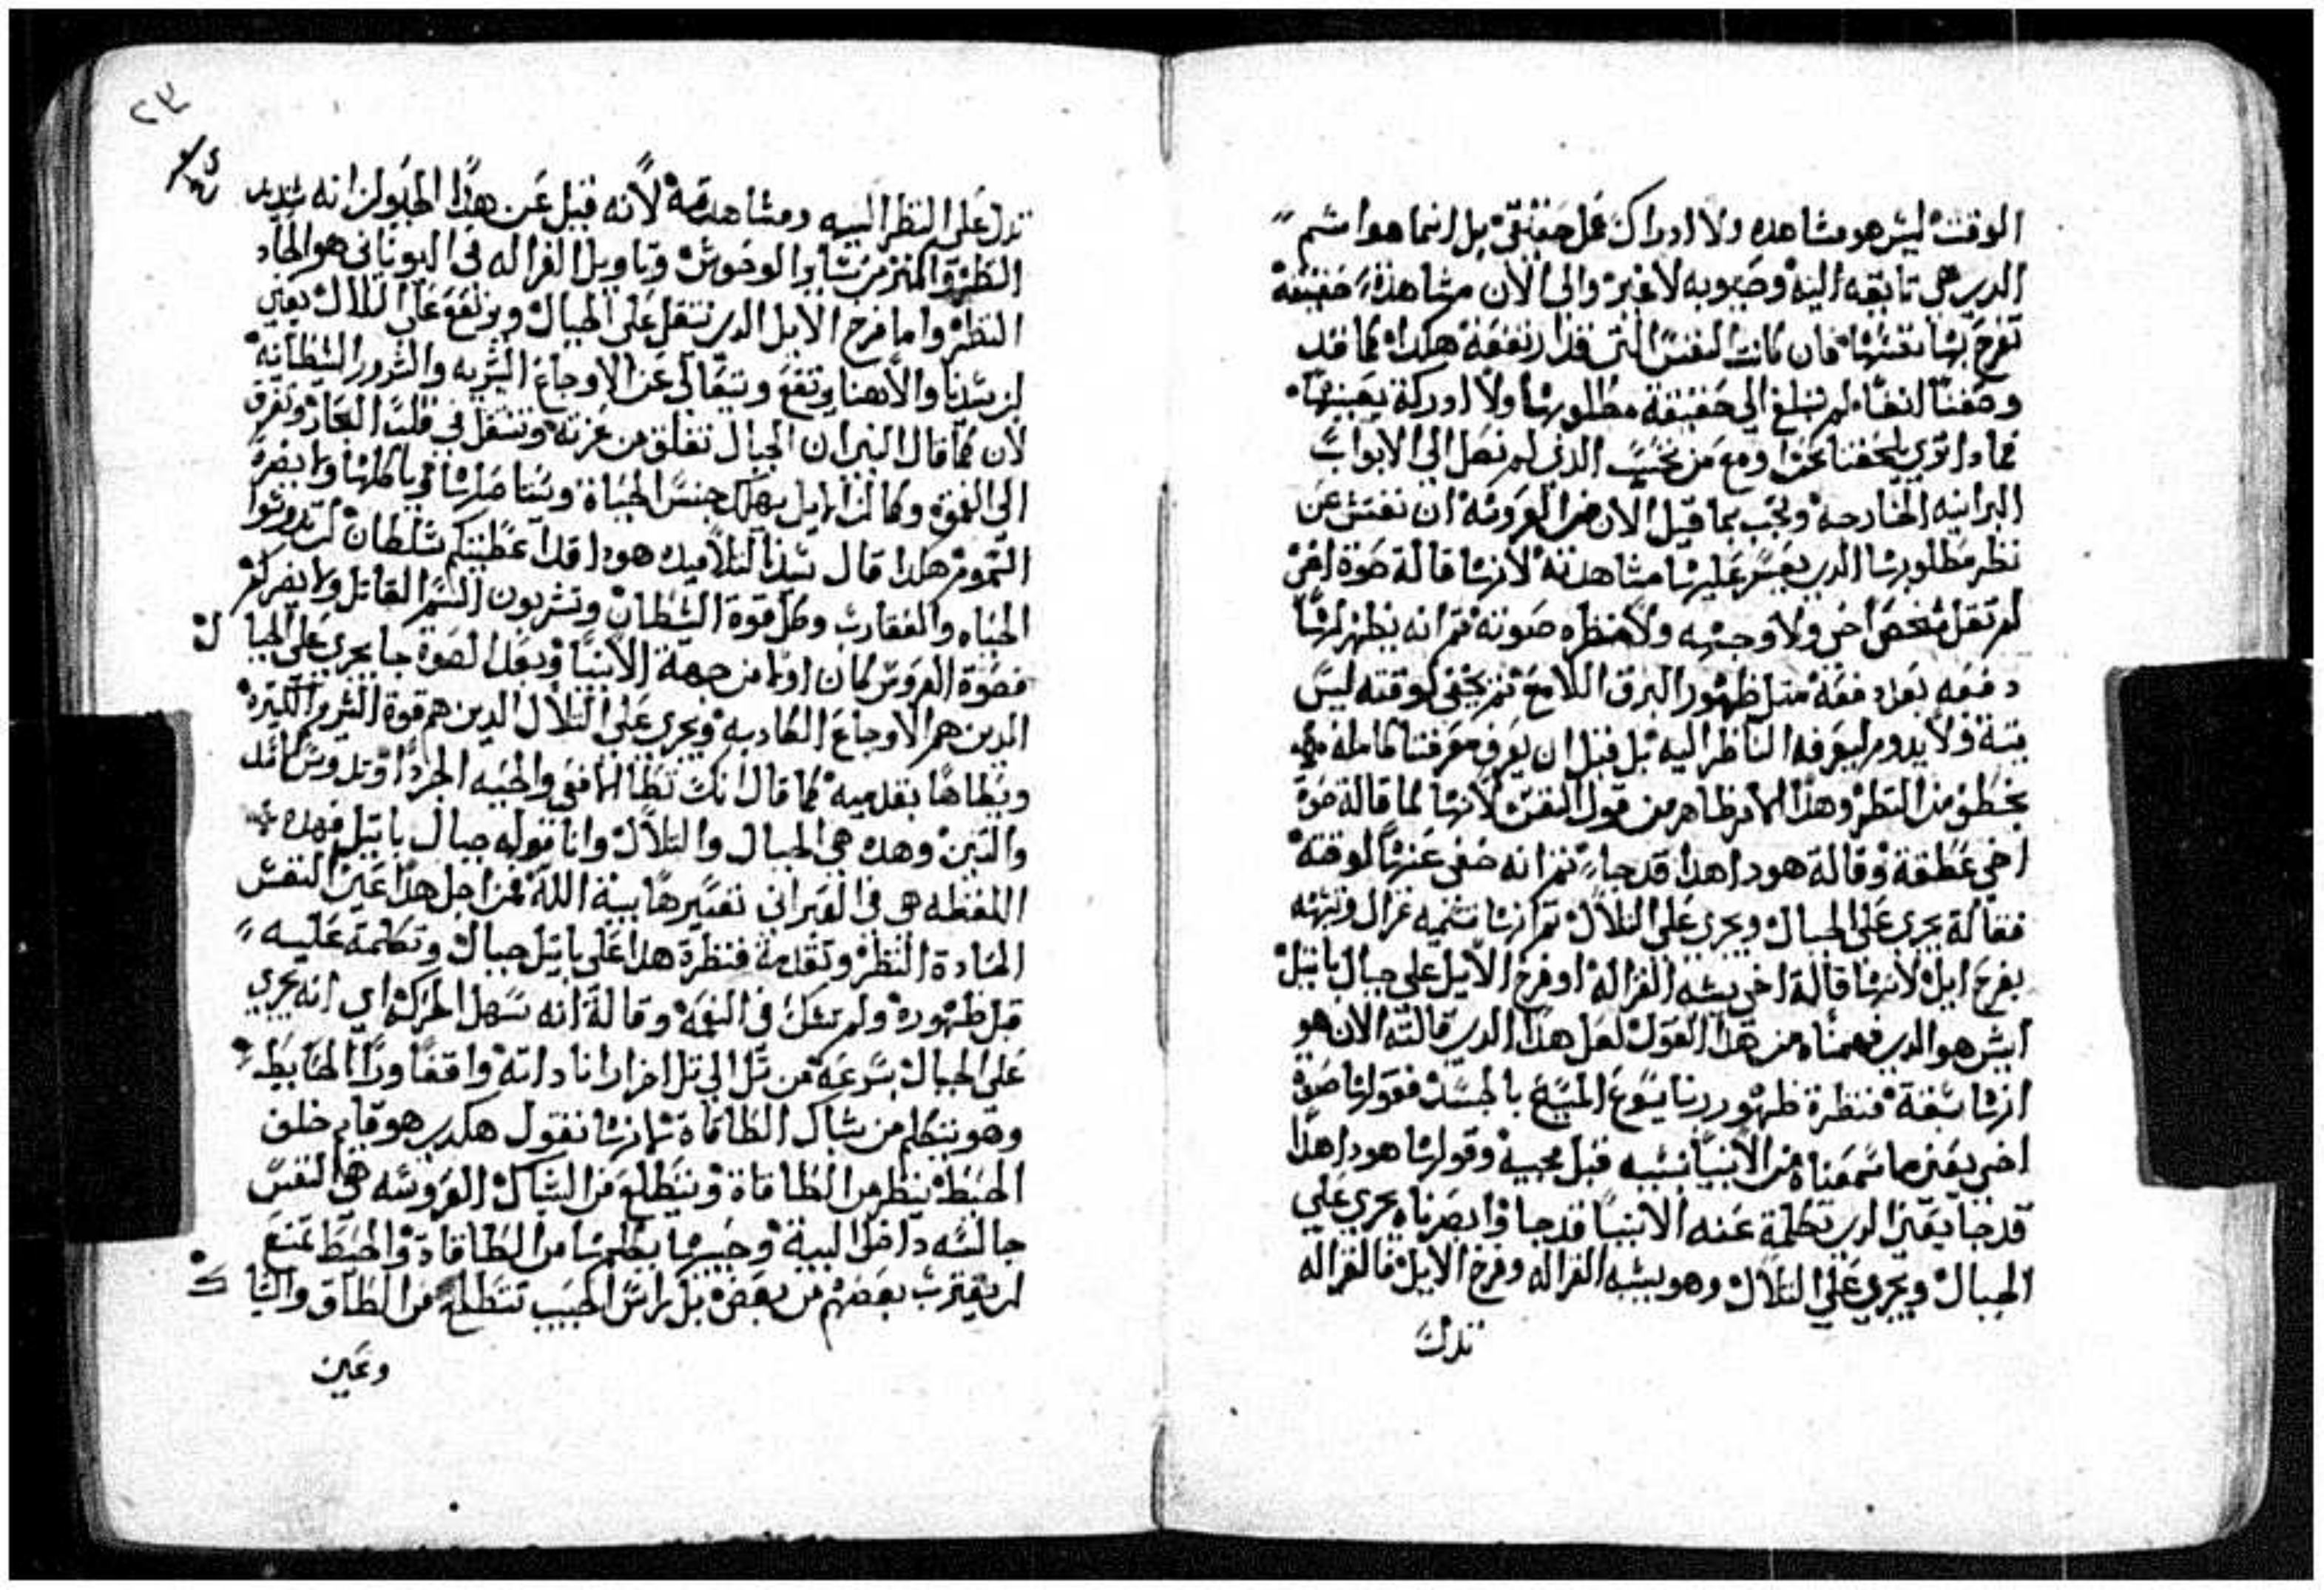 الوقت ليس هو مشاهده ولا ادراك عمل حقيقي بل انما هوا مشم
الدي هي تايقه اليه وحبوبه لا غير والي الان مشاهدة حقيقة
تفرح بها نفسها فان كانت النفس التي قد ارتفعة هكدا كما قد
وصفنا انفا لم تبلغ الي حقيقة مطلوبها ولا ادركة بعينها
فما دا تري يلحقنا نحن ومع من نحسب الدي لم نصل الي الابواب
البرانيه الخارجه ويجب بما قيل الان من العروسه ان نفتش عن
نظر مطلوبها الدي يعسر عليها مشاهدته لانها قالة صوة اخي
لم تقل شخص اخي ولا وجهه ولا منظره صوته تم انه يظهر لها
دفعه بعد دفعه متل ظهور البرق اللامع تم يختفي لوقته ليس
يتبة ولا يدوم ليعرفه الناظر اليه بل قبل ان يعرف معرفتا كامله
يخطف من النظر وهدا الامر ظاهر من قول النفس لانها لما قالة صوة
اخي عطفة وقالة هودا هدا قد جا تم انه خفي عنها لوقته
فقالة يجري علي الجبال ويجري علي التلال تم انها تسميه غزال وتشبهه
بفرخ ايل لانها قالة اخي يشبه الغزاله او فرخ الايل علي جبال باتيل
ايش هو الدي فهمناه من هدا القول لعل هدا الدي قالته الان هو
انها سبقة فنظرة ظهور ربنا يسوع المسيح بالجسد فقولها صوة
اخي يعني ما سمعناه من الانبيا بسببه قبل مجييه وقولها هودا هدا
قد جا يعني الدي تكلمة عنه الانبيا قد جا وابصرناه يجري علي
الجبال ويجري علي التلال وهو يشبه الغزاله وفرخ الايل فالغزاله
تدل
٢٣
تدل علي النظر اليه ومشاهدته لانه قيل عن هدا الحيوان انه شديد
النظر واكتر من ساير الوحوش وتاويل الغزاله في اليوناني هو الحاد
النظر واما فرخ الايل الدي تنتقل علي الجبال ويرتفع علي التلال يعني
ان سيدنا والاهنا يرتفع ويتعالي عن الاوجاع البشريه والشرور الشيطانيه
لان كما قال النبي ان الجبال تقلق من عزته وتنتقل في قلب البحار وتغرق
الي العمق وكما ان الايل يهلك جنس الحياة ويستاصلها وياكلها ولا يضره
السموم هكدا قال سيدنا لتلاميده هودا قد اعطيتكم سلطان ان تدوسوا
الحياه والعقارب وكل قوة الشيطان وتشربون السم القاتل ولا يضركم
فصوة العروس كان اولا من جهة الانبيا وبعد الصوة جا يجري علي الجبال
الدين هم الاوجاع الكادبه ويجري علي التلال الدين هم قوة الشرير الكتيره
ويطاها بقدميه كما قال انك تطا الافعي والحيه الجردا وتدوس الاسد
والتنين وهده هي الجبال والتلال واما قوله جبال باتيل فهده
اللفظه هي في العبراني تفسيرها بيت الله فمن اجل هدا عين النفس
الحادة النظر وتقدمة فنظرة هدا علي باتيل جبال وتكلمة عليه
قبل ظهوره ولم تشك في النعمه وقالة انه سهل الحركه اي انه يجري
علي الجبال بسرعة من تل الي تل اخر ارانا داته واقفا ورا الحايط
وهو يتكلم من شباك الطاقاة لانها تقول هكدي هو قايم خلف
الحيط ينظر من الطاقاة ويتطلع من الشباك العروسه هي النفس
جالسه داخل البية وحبيبها يكلمها من الطاقاة والحيط تمنع
ان يقترب بعضهم من بعض بل راس الحبيب تتطلع من الطاق والشباك
وعين